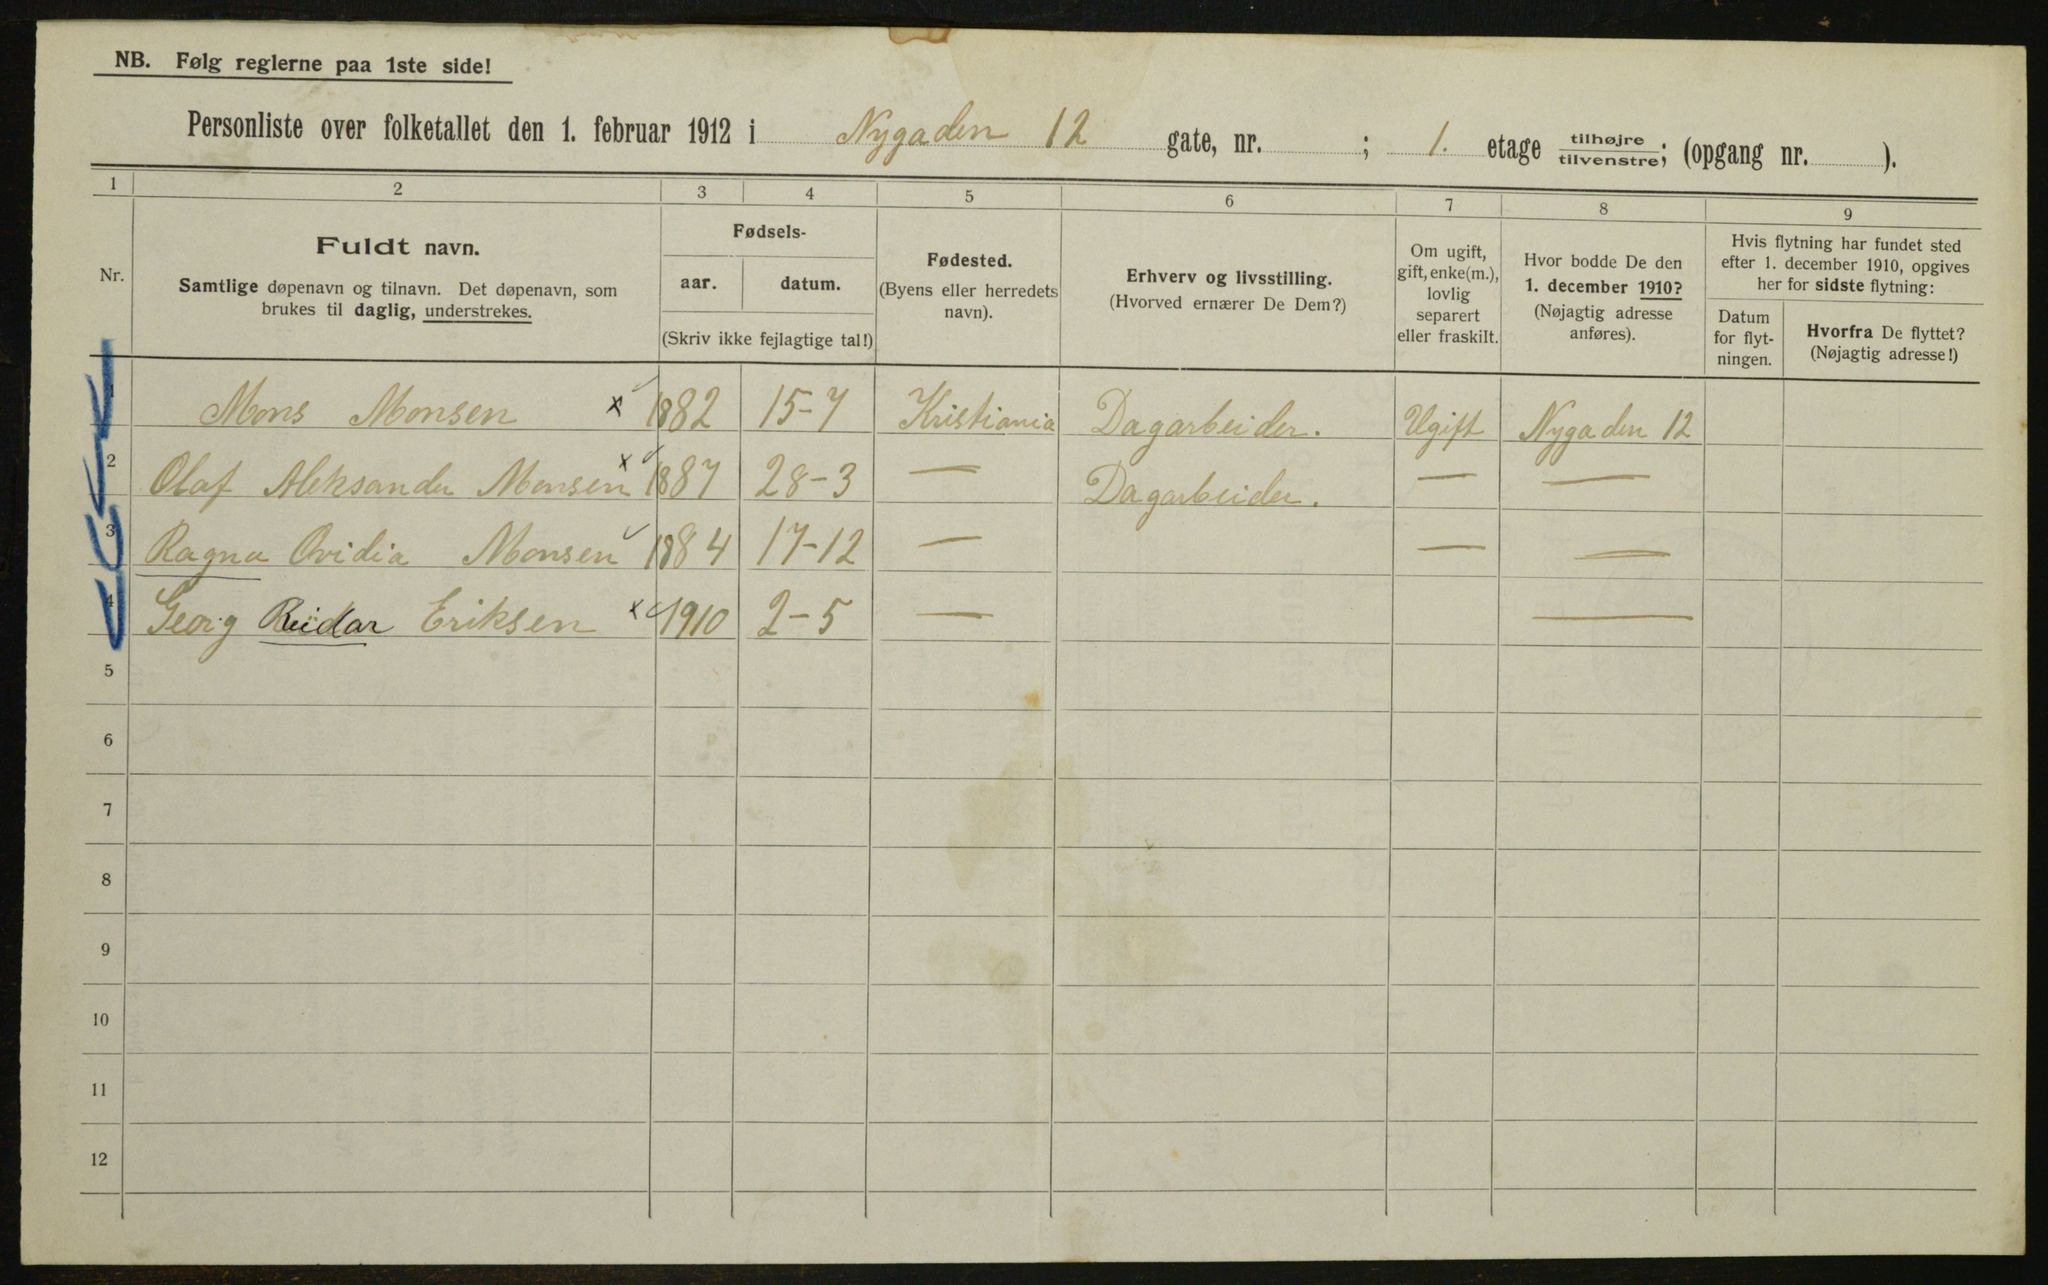 NB. Følg reglerne paa 1ste side!
Personliste over folketallet den 1. februar 1912 i Nygaden 12 gate, nr. ; 1. etage tilhøjre/tilvenstre; (opgang nr. ).
1 2 3 4 5 6 7 8 9
Nr.
Fuldt navn.
Samtlige døpenavn og tilnavn. Det døpenavn, som
brukes til daglig, understrekes.
Fødsels-
aar. datum.
(Skriv ikke fejlagtige tal!)
Fødested.
(Byens eller herredets
navn).
Erhverv og livsstilling.
(Hvorved ernærer De Dem?)
Om ugift,
gift, enke(m.),
lovlig
separert
eller fraskilt.
Hvor bodde De den
1. december 1910?
(Nøjagtig adresse
anføres).
Hvis flytning har fundet sted
efter 1. december 1910, opgives
her for sidste flytning:
Datum
for flyt-
ningen.
Hvorfra De flyttet?
(Nøjagtig adresse!)
1 Mons Monsen x 1882 15-7 Kristiania Dagarbeider. Ugift Nygaden 12
2 Olaf Aleksander Monsen x 1887 28-3 — Dagarbeider. — —
3 Ragna Ovidia Monsen 1884 17-12 — — —
4 Georg Reidar Eriksen x 1910 2-5 — —
5
6
7
8
9
10
11
12